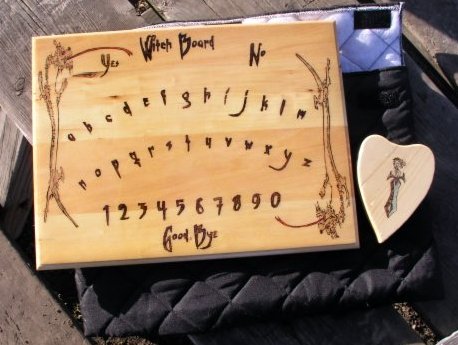 Witch Board
Yes No
abcdefghijklm
nopqrstuvwxyz
1234567890
Good Bye